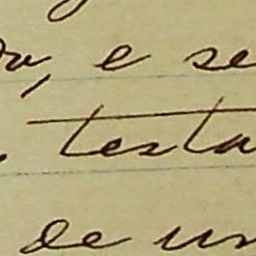 , e se
testa
de un